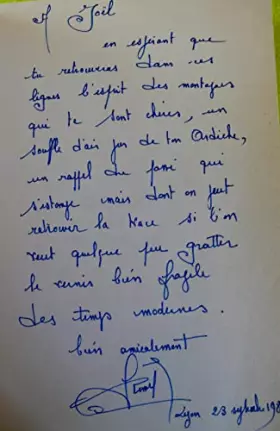 A Joël
en espérant que
tu retrouveras dans ces
lignes l'esprit des montagnes
qui te sont chères, un
souffle d'air pur de ton Ardèche,
un rappel du passé qui
s'estompe mais dont on peut
retrouver la trace si l'on
veut quelque peu gratter
le vernis bien fragile
des temps modernes.
bien amicalement
Lyon 23 septembre 198